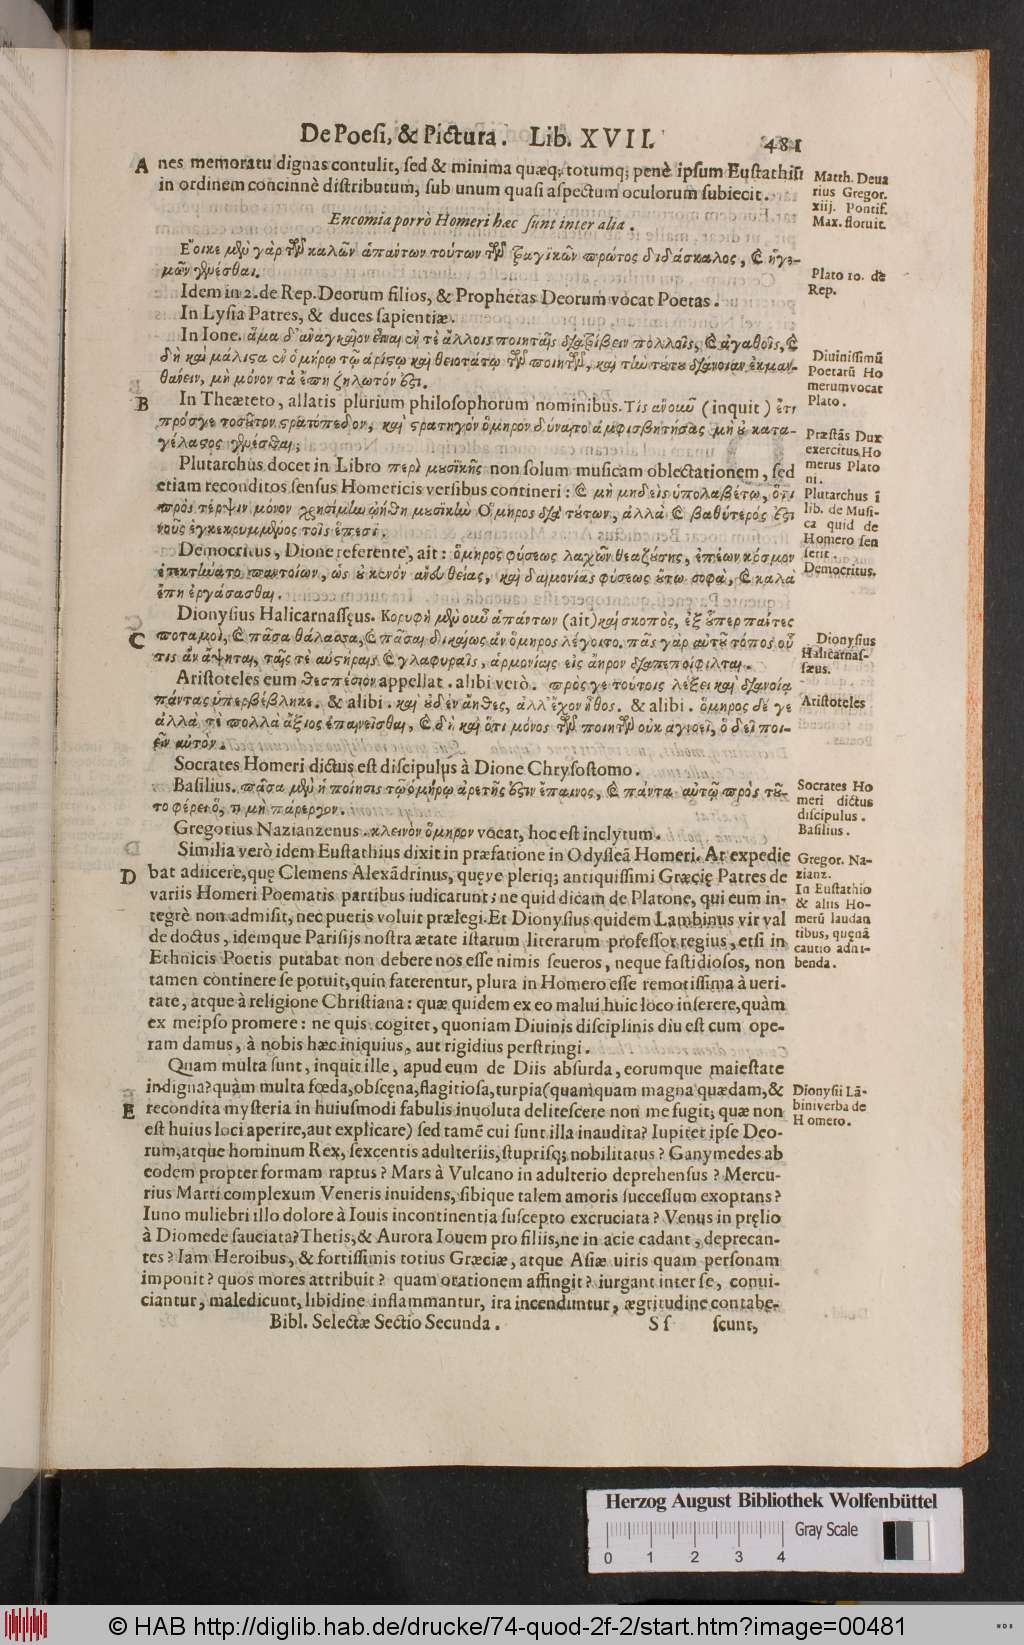 De Poesi, & Pictura. Lib. XVII. 481
A nes memoratu dignas contulit, sed & minima quæq; totumq; penè ipsum Eustathiũ
in ordinem concinnè distributum, sub unum quasi aspectum oculorum subiecit.
Matth. Deua
rius Gregor.
xiij. Pontif.
Max. floruit.
Encomia porrò Homeri hæc sunt inter alia.
Εοικε μὲν γὰρ τῶν καλῶν ἁπάντων τούτων τῶν τραγικῶν πρῶτος διδάσκαλος, καὶ ἡγε-
μῶν γενέσθαι.
Plato 10. de
Rep.
Idem in 2. de Rep. Deorum filios, & Prophetas Deorum vocat Poetas.
In Lysia Patres, & duces sapientiæ.
In Ione. ἅμα δ' ἀναγκαῖον εἶναι ἐν τὲ ἄλλοις ποιηταῖς διατρίβειν πολλοῖς, καὶ ἀγαθοῖς, καὶ
δὴ καὶ μάλιστα ἐν ὁμήρῳ τῷ ἀρίστῳ καὶ θειοτάτῳ τῶν ποιητῶν, καὶ τὴν τούτου διάνοιαν ἐκμαν-
θάνειν, μὴ μόνον τὰ ἔπη ζηλωτόν ἐστι.
Diuinissimũ
Poetarũ Ho
merum vocat
Plato.
B In Theæteto, allatis plurium philosophorum nominibus. Τίς ἂν οὖν (inquit) ἔτι
πρός γε τοσοῦτον στρατόπεδον, καὶ στρατηγὸν ὅμηρον δύναιτο ἀμφισβητήσας μὴ οὐ κατα-
γέλαστος γενέσθαι;
Præstãs Dux
exercitus Ho
merus Plato
ni.
Plutarchus docet in Libro περὶ μουσικῆς non solum musicam oblectationem, sed
etiam reconditos sensus Homericis versibus contineri: καὶ μὴ μηδεὶς ὑπολαβέτω, ὅτι
πρὸς τέρψιν μόνον χρησίμην ᾠήθη μουσικὴν Ὅμηρος διὰ τούτων, ἀλλὰ καὶ βαθύτερός ἐστι
νοῦς ἐγκεκρυμμένος τοῖς ἔπεσι.
Plutarchus ĩ
lib. de Musi-
ca quid de
Homero sen
serit.
Democritus, Dione referente, ait: ὅμηρος φύσεως λαχὼν θεαζούσης, ἐπέων κόσμον
ἐπεκτήνατο παντοίων, ὡς οὐκ ἐνὸν ἄνευ θείας, καὶ δαιμονίας φύσεως οὕτω σοφὰ, καὶ καλὰ
ἔπη ἐργάσασθαι.
Democritus.
Dionysius Halicarnasseus. Κορυφὴ μὲν οὖν ἁπάντων (ait) καὶ σκοπὸς, ἐξ οὗπερ πάντες
C ποταμοὶ, καὶ πᾶσα θάλασσα, καὶ πᾶσαι δικαίως ἂν ὅμηρος λέγοιτο. πᾶς γὰρ αὐτοῦ τόπος οὗ
τις ἂν ἅψηται, ταῖς τὲ αὐστήραις καὶ γλαφυραῖς, ἁρμονίαις εἰς ἄκρον διαπεποίκιλται.
Dionysius
Halicarnas-
sæus.
Aristoteles eum θεσπέσιον appellat. alibi verò. πρός γε τούτοις λέξει καὶ διανοίᾳ
πάντας ὑπερβέβληκε. & alibi. καὶ οὐδὲν ἄηθες, ἀλλ' ἔχον ἦθος. & alibi. ὅμηρος δέ γε
ἀλλά τε πολλὰ ἄξιος ἐπαινεῖσθαι, καὶ δὴ καὶ ὅτι μόνος τῶν ποιητῶν οὐκ ἀγνοεῖ, ὃ δεῖ ποι-
εῖν αὐτόν.
Aristoteles
Socrates Homeri dictus est discipulus à Dione Chrysostomo.
Basilius. πᾶσα μὲν ἡ ποίησις τῷ ὁμήρῳ ἀρετῆς ἐστιν ἔπαινος, καὶ πάντα αὐτῷ πρὸς τοῦ-
το φέρει, ὅ, τι μὴ πάρεργον.
Socrates Ho
meri dictus
discipulus.
Basilius.
Gregorius Nazianzenus. κλεινὸν ὅμηρον vocat, hoc est inclytum.
Similia verò idem Eustathius dixit in præfatione in Odysseã Homeri. At expedie
D bat adiicere, quę Clemens Alexãdrinus, quęve pleriq; antiquissimi Græcię Patres de
variis Homeri Poematis partibus iudicarunt; ne quid dicam de Platone, qui eum in-
tegrè non admisit, nec pueris voluit prælegi. Et Dionysius quidem Lambinus vir val
de doctus, idemque Parisijs nostra ætate istarum literarum professor regius, etsi in
Ethnicis Poetis putabat non debere nos esse nimis seueros, neque fastidiosos, non
tamen continere se potuit, quin fateretur, plura in Homero esse remotissima à ueri-
tate, atque à religione Christiana: quæ quidem ex eo malui huic loco inserere, quàm
ex meipso promere: ne quis cogitet, quoniam Diuinis disciplinis diu est cum ope-
ram damus, à nobis hæc iniquius, aut rigidius perstringi.
Gregor. Na-
zianz.
In Eustathio
& aliis Ho-
merũ laudan
tibus, quęnã
cautio adhi-
benda.
Quam multa sunt, inquit ille, apud eum de Diis absurda, eorumque maiestate
indigna? quàm multa fœda, obscęna, flagitiosa, turpia (quamquam magna quædam, &
E recondita mysteria in huiusmodi fabulis inuoluta delitescere non me fugit; quæ non
est huius loci aperire, aut explicare) sed tamẽ cui sunt illa inaudita? Iupiter ipse Deo-
rum, atque hominum Rex, sexcentis adulteriis, stuprisq; nobilitatus? Ganymedes ab
eodem propter formam raptus? Mars à Vulcano in adulterio deprehensus? Mercu-
rius Marti complexum Veneris inuidens, sibique talem amoris successum exoptans?
Iuno muliebri illo dolore à Iouis incontinentia suscepto excruciata? Venus in pręlio
à Diomede sauciata? Thetis, & Aurora Iouem pro filiis, ne in acie cadant, deprecan-
tes? Iam Heroibus, & fortissimis totius Græciæ, atque Asiæ uiris quam personam
imponit? quos mores attribuit? quam orationem affingit? iurgant inter se, conui-
ciantur, maledicunt, libidine inflammantur, ira incenduntur, ægritudine contabe-
Dionysii Lã-
bini verba de
Homero.
Bibl. Selectæ Sectio Secunda. Sſ scunt,
Herzog August Bibliothek Wolfenbüttel
Gray Scale
0 1 2 3 4
© HAB http://diglib.hab.de/drucke/74-quod-2f-2/start.htm?image=00481